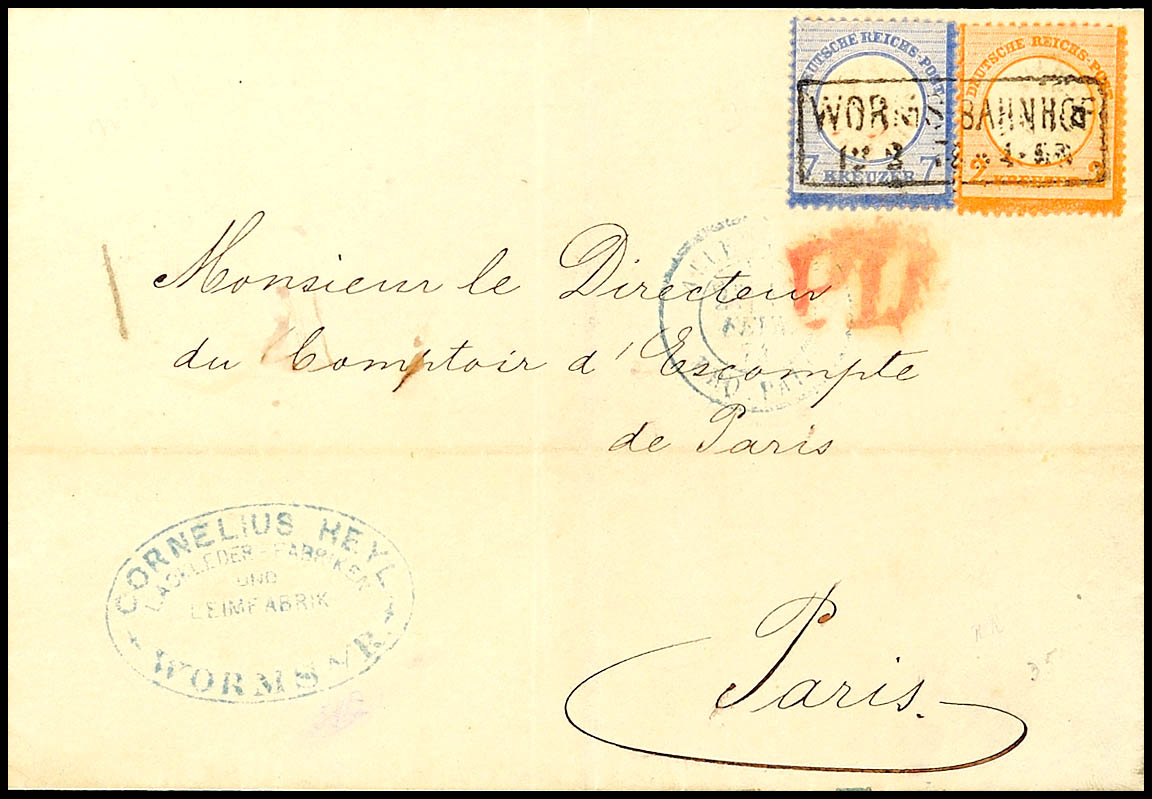 DEUTSCHE REICHS-POST
7 KREUZER 7
DEUTSCHE REICHS-POST
2 KREUZER 2
WORMS BAHNHOF
PD
Monsieur le Directeur
du Comptoir d'Escompte
de Paris
Paris.
CORNELIUS HEYL
LACKLEDER-FABRIKEN
UND
LEIMFABRIK
WORMS